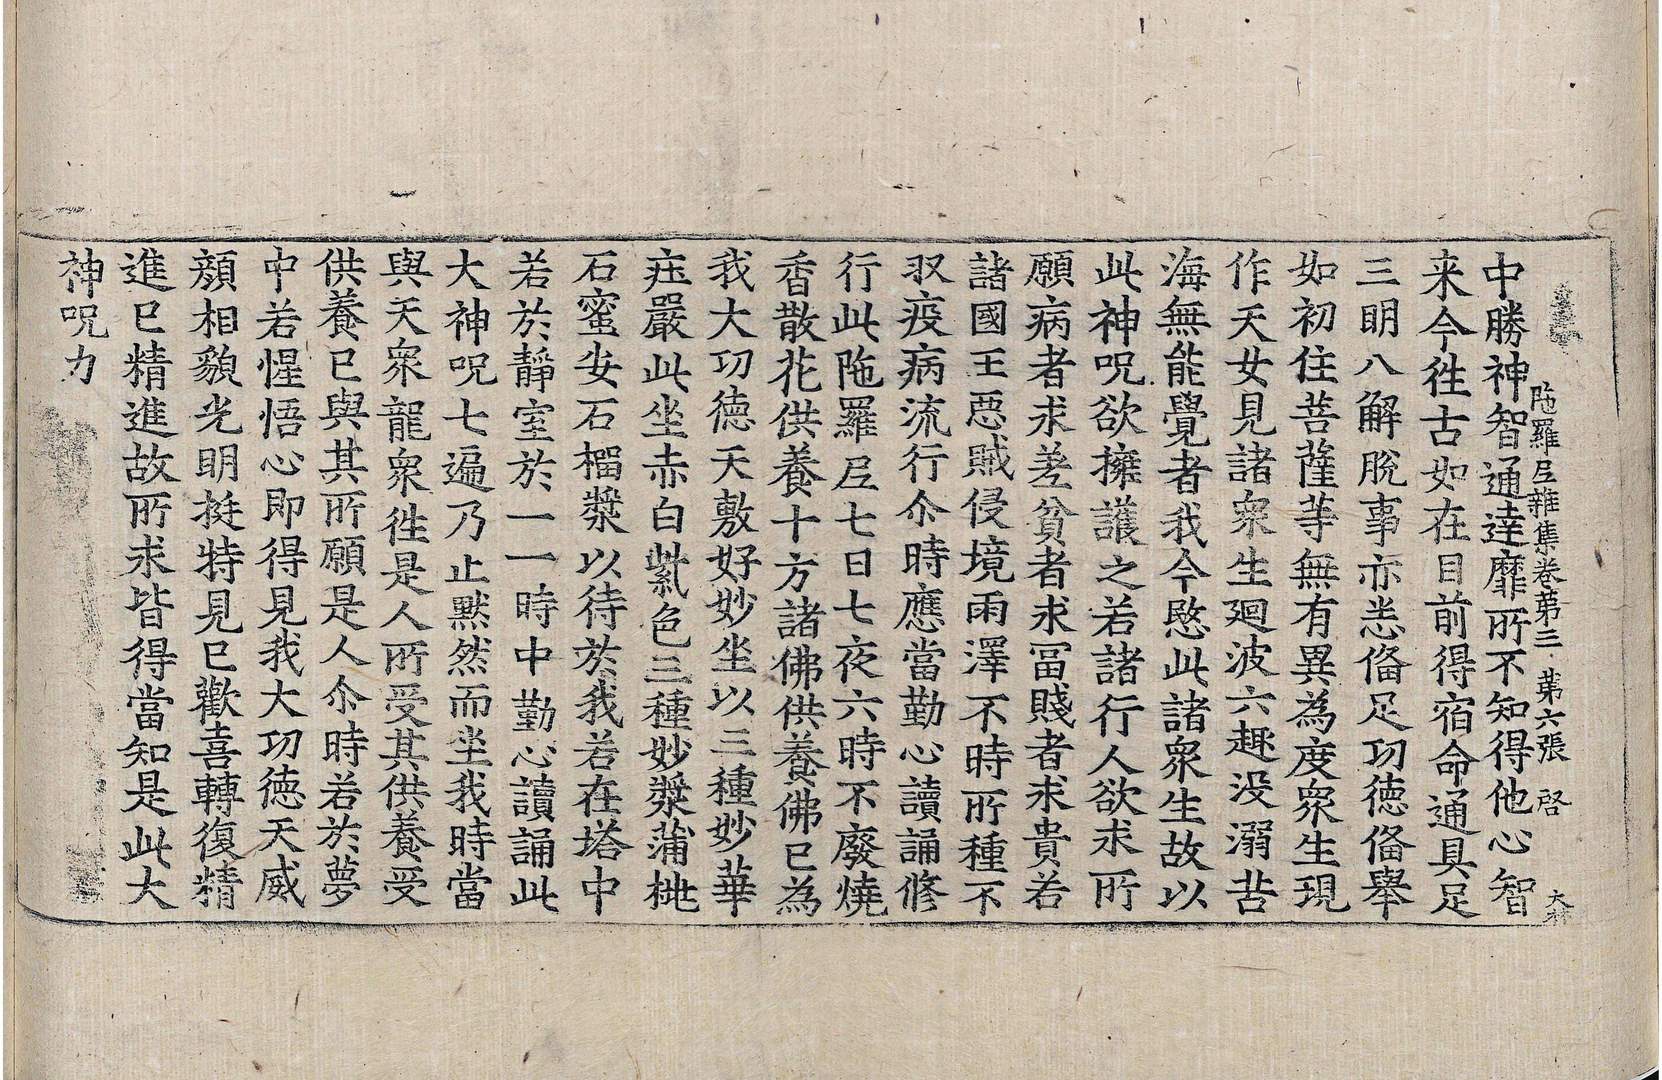 陁羅尼雜集卷第三 第六張 啓 大林
中勝神智通達靡所不知得他心智
来今徃古如在目前得宿命通具足
三明八解脫事亦悉俻足功德俻舉
如初住菩薩等無有異為度衆生現
作天女見諸衆生廻波六趣没溺苦
海無能覺者我今愍此諸衆生故以
此神呪欲擁護之若諸行人欲求所
願病者求差貧者求冨賤者求貴若
諸國王惡賊侵境雨澤不時所種不
収疫病流行尒時應當勤心讀誦修
行此陁羅尼七日七夜六時不廢燒
香散花供養十方諸佛供養佛已為
我大功德天敷好妙坐以三種妙華
莊嚴此坐赤白紫色三種妙漿蒲桃
石蜜安石榴漿以待於我若在塔中
若於靜室於一一時中勤心讀誦此
大神呪七遍乃止默然而坐我時當
與天衆龍衆徃是人所受其供養受
供養已與其所願是人尒時若於夢
中若惺悟心即得見我大功德天威
顏相貌光明挺特見已歡喜轉復精
進已精進故所求皆得當知是此大
神呪力